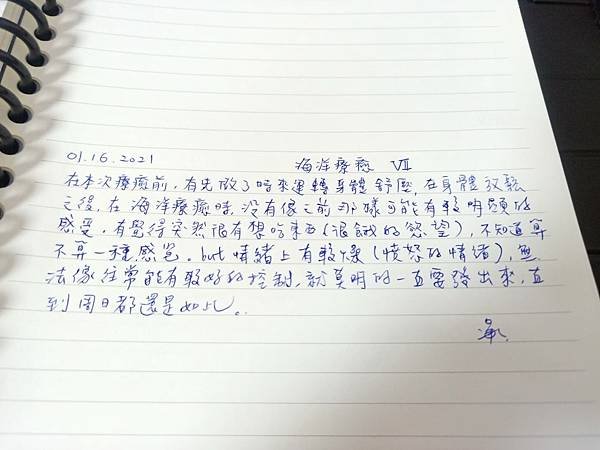 01.16.2021 海洋療癒 VII
在本次療癒前,有先做了時來運轉身體舒壓,在身體放鬆
之後,在海洋療癒時,沒有像之前那樣可能有較明顯的
感受,有覺得突然很有想吃東西(很餓的慾望),不知道算
不算一種感覺。but情緒上有較燥(憤怒的情緒),無
法像往常能有較好的控制,就莫明的一直要發出來,直
到周日都還是如此。